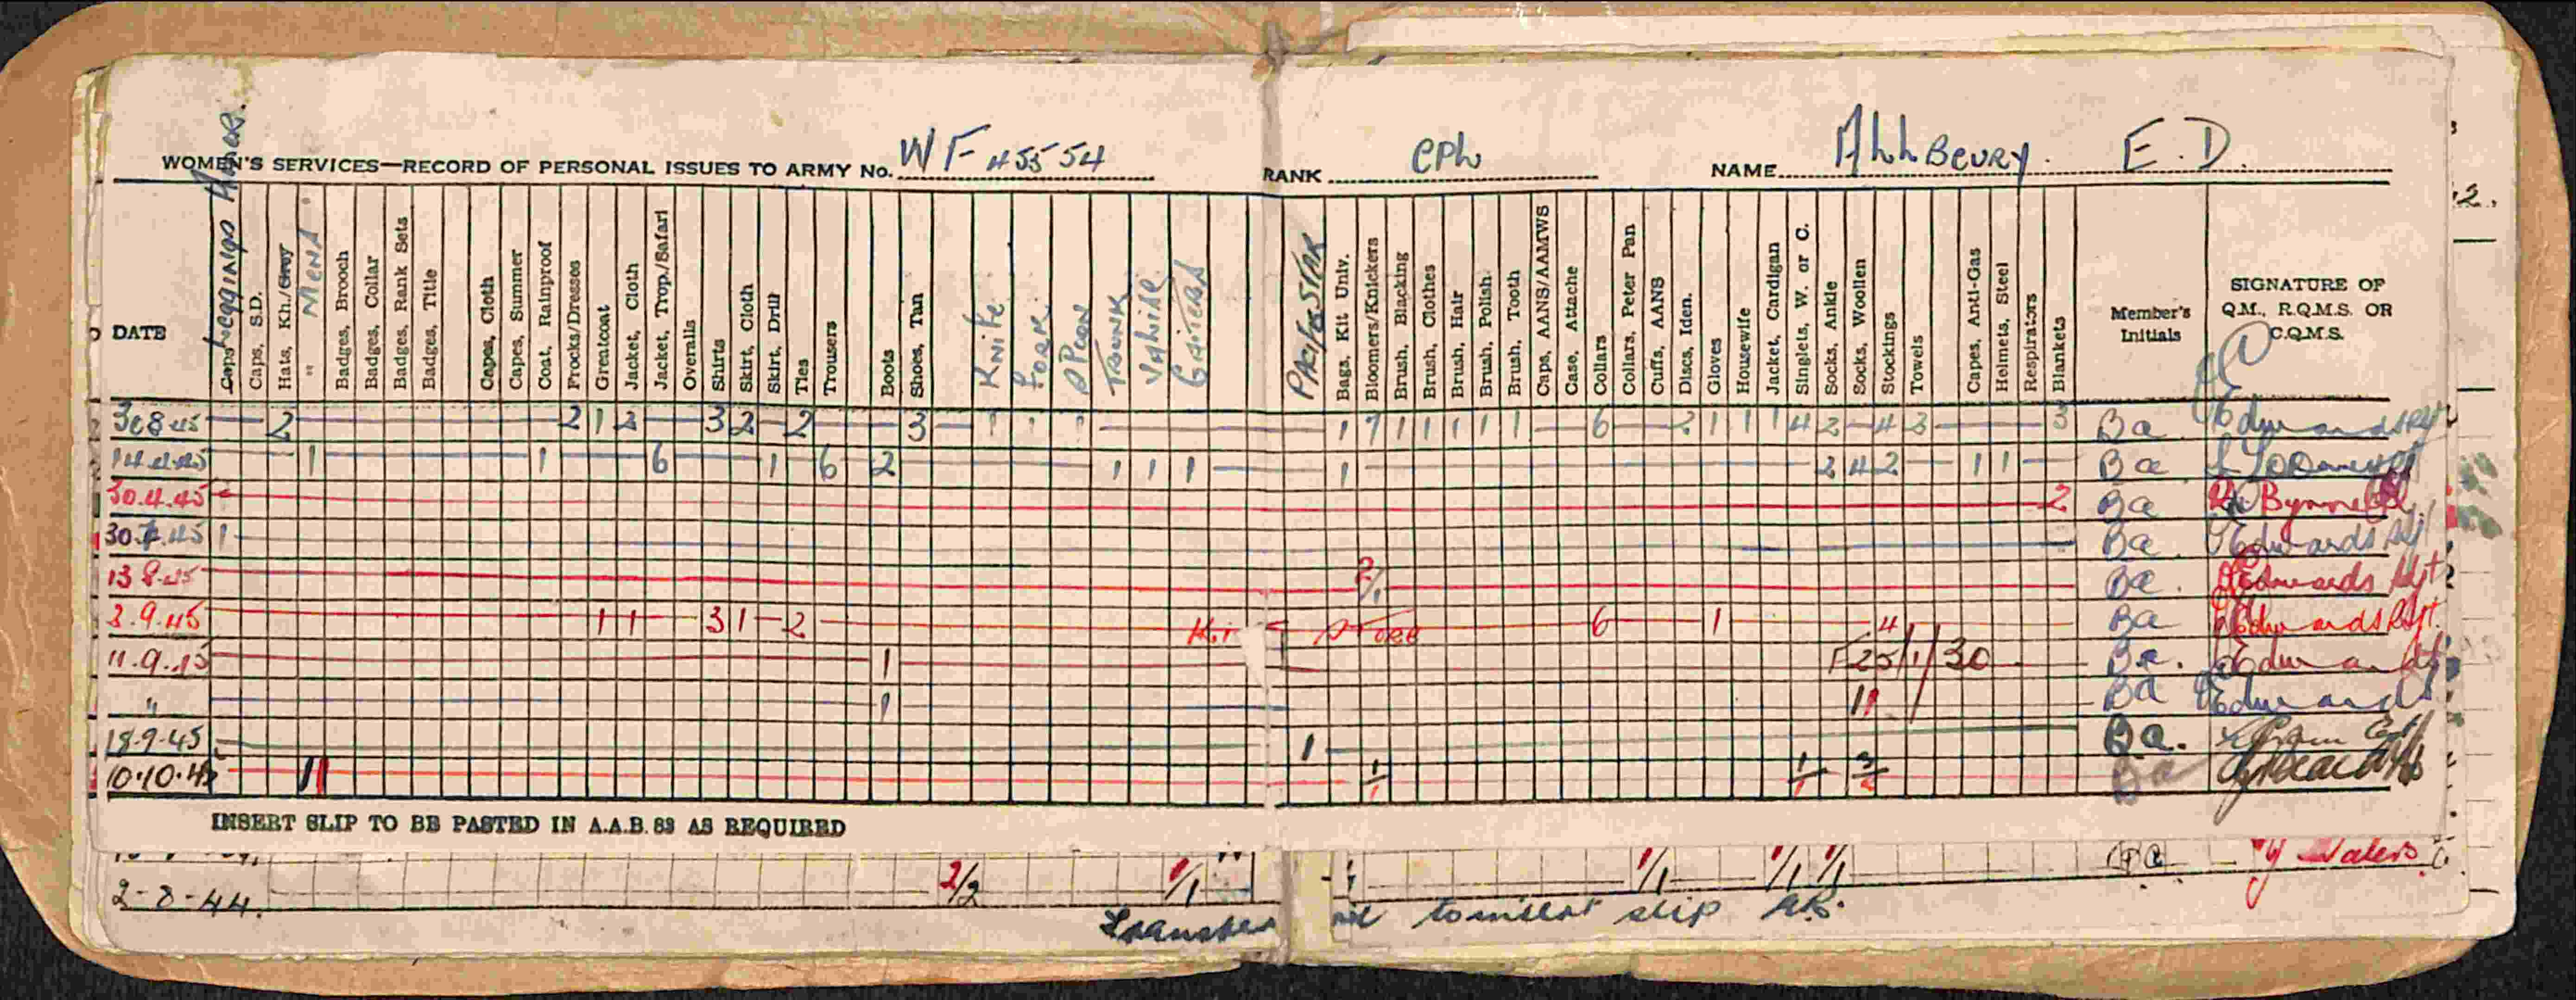 WOMEN'S SERVICES—RECORD OF PERSONAL ISSUES TO ARMY No. WF 45554 RANK CPL NAME E.D.
DATE Leggings Caps, S.D. Hats, Kh./Grey " MENS Badges, Brooch Badges, Collar Badges, Rank Sets Badges, Title Capes, Cloth Capes, Summer Coat, Rainproof Frocks/Dresses Greatcoat Jacket, Cloth Jacket, Trop./Safari Overalls Shirts Skirt, Cloth Skirt, Drill Ties Trousers Boots Shoes, Tan Knife Fork SPOON TRUNK Valise Gaiters Bags, Kit Univ. Bloomers/Knickers Brush, Blacking Brush, Clothes Brush, Hair Brush, Polish Brush, Tooth Caps, AANS/AAMWS Case, Attache Collars Collars, Peter Pan Cuffs, AANS Discs, Iden. Gloves Housewife Jacket, Cardigan Singlets, W. or C. Socks, Ankle Socks, Woollen Stockings Towels Capes, Anti-Gas Helmets, Steel Respirators Blankets Member's Initials SIGNATURE OF Q.M., R.Q.M.S. OR C.Q.M.S.
2 2 1 2 3 2 2 3 1 7 1 1 1 1 1 6 2 1 1 1 4 2 4 3 3 Ba Edwards
1 1 6 1 6 2 1 1 1 1 2 4 2 1 1 Ba
30.4.45 2 Ba Byrne
30.7.45 1 Ba Edwards Sgt
13.8.45 2/1 Ba. Edwards Sgt
3.9.45 1 1 3 1 2 Kit Store 6 1 4 Ba Edwards Sgt.
11.9.45 1 F25/1/30 Ba. Edwards
" 1 11 Ba Edwards
18.9.45 1 Ba.
10.10.45 11 1/1 1/1 Ba
INSERT SLIP TO BE PASTED IN A.A.B. 83 AS REQUIRED
2/2 1/1 1/1 1/1 1/1
2-8-44.
to insert slip